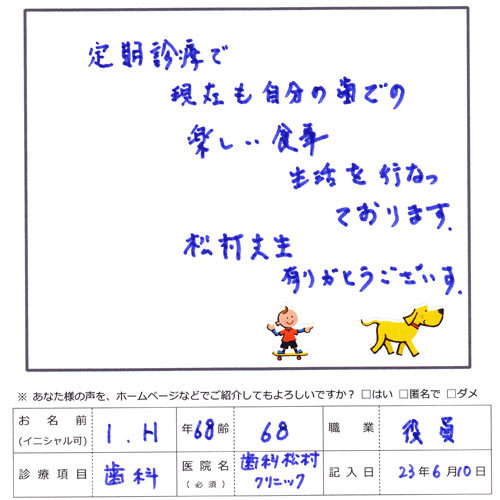 定期診療で
現在も自分の歯での
楽しい食事
生活を行なっ
ております。
松村先生
有りがとうございます。
※ あなた様の声を、ホームページなどでご紹介してもよろしいですか？ □はい □匿名で □ダメ
お名前(イニシャル可) I.H 年68齢 68 職業 役員
診療項目 歯科 医院名(必須) 歯科松村クリニック 記入日 23年6月10日